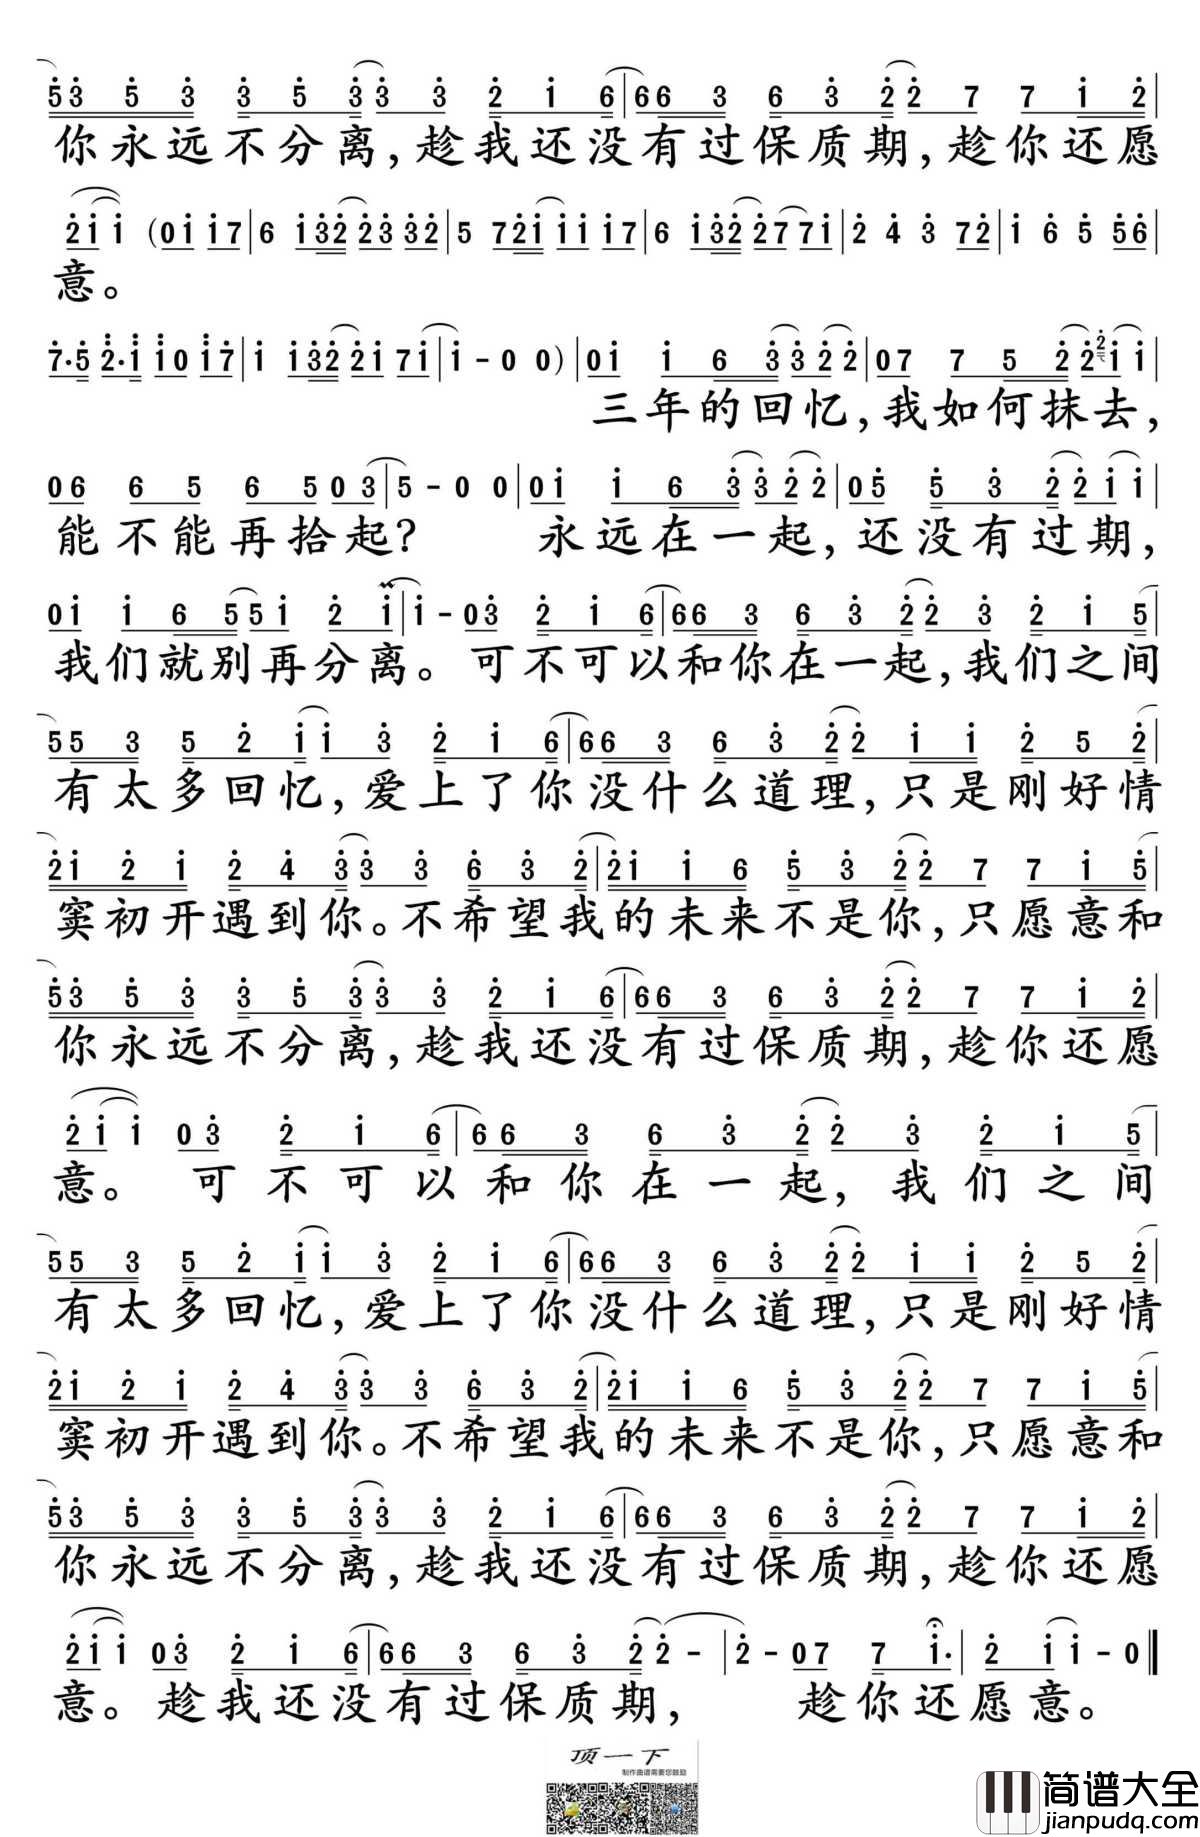 5 3 5 3 3 5 3 3 3 2 1 6 | 6 6 3 6 3 2 2 7 7 1 2 |
你永远不分离,趁我还没有过保质期,趁你还愿
2 1 1 (0 1 1 7 | 6 1 3 2 2 3 3 2 | 5 7 2 1 1 1 1 7 | 6 1 3 2 2 7 7 1 | 2 4 3 7 2 | 1 6 5 5 6 |
意。
7·5 2·1 1 0 1 7 | 1 1 3 2 2 1 7 1 | 1 - 0 0) | 0 1 1 6 3 3 2 2 | 0 7 7 5 2 2 2 1 1 |
三年的回忆,我如何抹去,
0 6 6 5 6 5 0 3 | 5 - 0 0 | 0 1 1 6 3 3 2 2 | 0 5 5 3 2 2 1 1 |
能不能再拾起? 永远在一起,还没有过期,
0 1 1 6 5 5 1 2 1 | 1 - 0 3 2 1 6 | 6 6 3 6 3 2 2 3 2 1 5 |
我们就别再分离。可不可以和你在一起,我们之间
5 5 3 5 2 1 1 3 2 1 6 | 6 6 3 6 3 2 2 1 1 2 5 2 |
有太多回忆,爱上了你没什么道理,只是刚好情
2 1 2 1 2 4 3 3 3 6 3 2 | 2 1 1 6 5 3 2 2 7 7 1 5 |
窦初开遇到你。不希望我的未来不是你,只愿意和
5 3 5 3 3 5 3 3 3 2 1 6 | 6 6 3 6 3 2 2 7 7 1 2 |
你永远不分离,趁我还没有过保质期,趁你还愿
2 1 1 0 3 2 1 6 | 6 6 3 6 3 2 2 3 2 1 5 |
意。 可不可以和你在一起,我们之间
5 5 3 5 2 1 1 3 2 1 6 | 6 6 3 6 3 2 2 1 1 2 5 2 |
有太多回忆,爱上了你没什么道理,只是刚好情
2 1 2 1 2 4 3 3 3 6 3 2 | 2 1 1 6 5 3 2 2 7 7 1 5 |
窦初开遇到你。不希望我的未来不是你,只愿意和
5 3 5 3 3 5 3 3 3 2 1 6 | 6 6 3 6 3 2 2 7 7 1 2 |
你永远不分离,趁我还没有过保质期,趁你还愿
2 1 1 0 3 2 1 6 | 6 6 3 6 3 2 2 - | 2 - 0 7 7 1· | 2 1 1 - 0 ‖
意。趁我还没有过保质期, 趁你还愿意。
顶一下
制作曲谱需要您鼓励
简谱大全
jianpudq.com